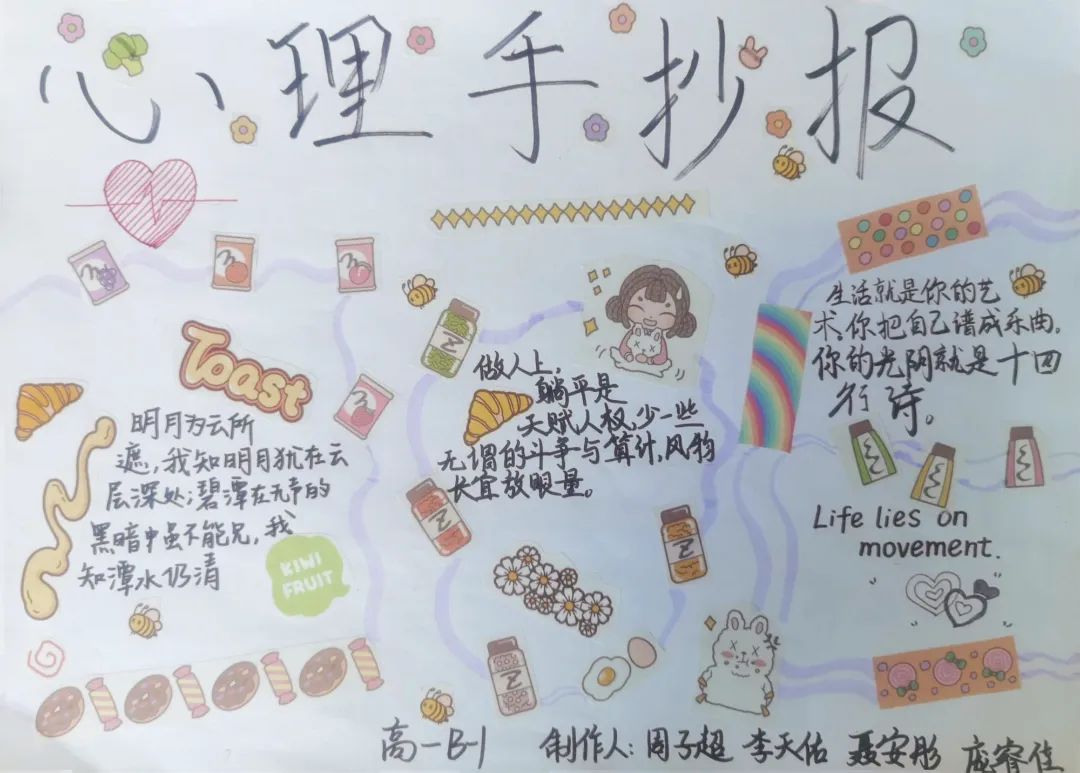 心理手抄报
Toast
明月为云所
遮，我知明月犹在云
层深处；碧潭在无声的
黑暗中虽不能见，我
知潭水仍清
KIWI
FRUIT
做人上，
躺平是
天赋人权，少一些
无谓的斗争与算计，风物
长宜放眼量。
生活就是你的艺
术。你把自己谱成乐曲，
你的光阴就是十四
行诗。
Life lies on
movement.
高一B-1 制作人：周子超 李天佑 聂安彤 庞睿佳